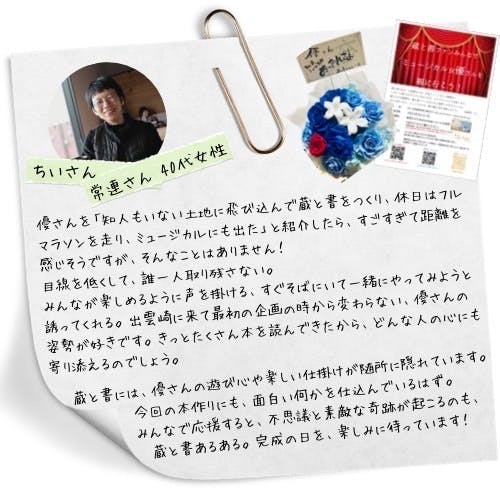 優さん
いつも
ありがとう
蔵と書ファンのみんなで
ミュージカル女優さんを
観に行こう!
ちいさん
常連さん 40代女性
優さんを「知人もいない土地に飛び込んで蔵と書をつくり、休日はフル
マラソンを走り、ミュージカルにも出た」と紹介したら、すごすぎて距離を
感じそうですが、そんなことはありません!
目線を低くして、誰一人取り残さない。
みんなが楽しめるように声を掛ける、すぐそばにいて一緒にやってみようと
誘ってくれる。出雲崎に来て最初の企画の時から変わらない、優さんの
姿勢が好きです。きっとたくさん本を読んできたから、どんな人の心にも
寄り添えるのでしょう。
蔵と書には、優さんの遊び心や楽しい仕掛けが随所に隠れています。
今回の本作りにも、面白い何かを仕込んでいるはず。
みんなで応援すると、不思議と素敵な奇跡が起こるのも、
蔵と書あるある。完成の日を、楽しみに待っています!